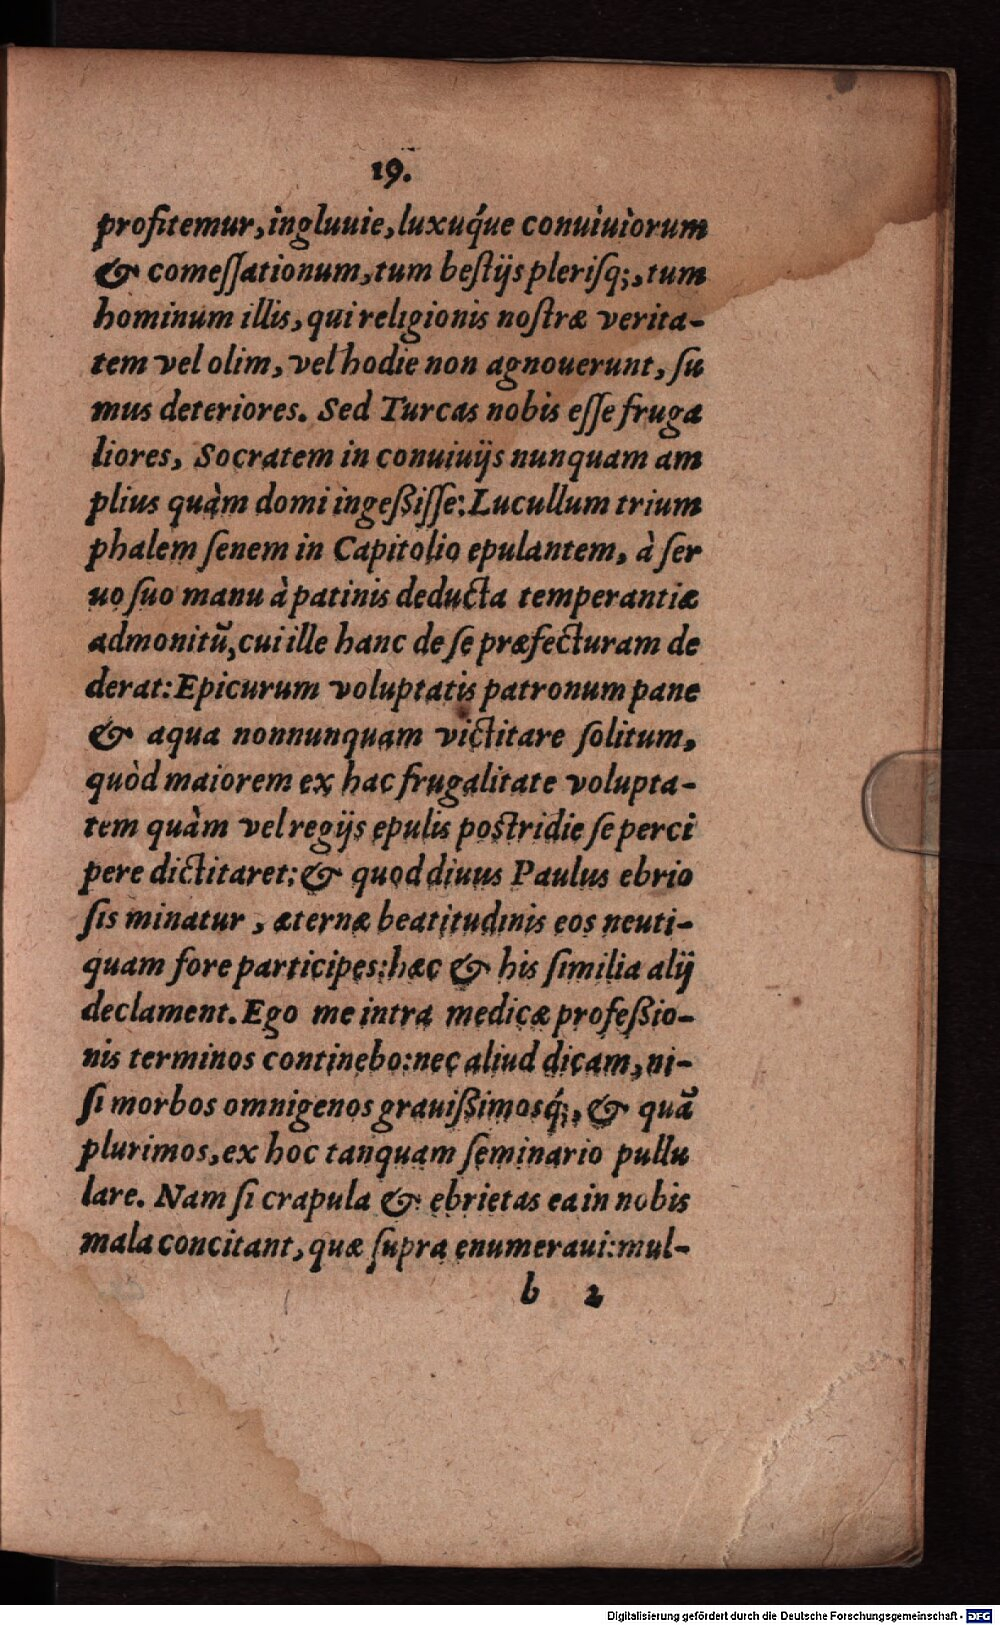 19.
profitemur, ingluuie, luxuq́ue conuiuiorum
& comeſſationum, tum beſtijs pleriſq;, tum
hominum illis, qui religionis noſtræ verita-
tem vel olim, vel hodie non agnouerunt, ſu
mus deteriores. Sed Turcas nobis eſſe fruga
liores, Socratem in conuiuijs nunquam am
plius quàm domi ingeßiſſe: Lucullum trium
phalem ſenem in Capitolio epulantem, à ſer
uo ſuo manu à patinis deducta temperantiæ
admonitũ, cui ille hanc de ſe præfecturam de
derat: Epicurum voluptatis patronum pane
& aqua nonnunquam victitare ſolitum,
quòd maiorem ex hac frugalitate volupta-
tem quàm vel regijs epulis poſtridie ſe perci
pere dictitaret: & quod diuus Paulus ebrio
ſis minatur, æternæ beatitudinis eos neuti-
quam fore participes: hæc & his ſimilia alij
declament. Ego me intra medicæ profeßio-
nis terminos continebo: nec aliud dicam, ni-
ſi morbos omnigenos grauißimosq́;, & quã
plurimos, ex hoc tanquam ſeminario pullu
lare. Nam ſi crapula & ebrietas ea in nobis
mala concitant, quæ ſupra enumeraui: mul-
b 2
Digitalisierung gefördert durch die Deutsche Forschungsgemeinschaft - DFG